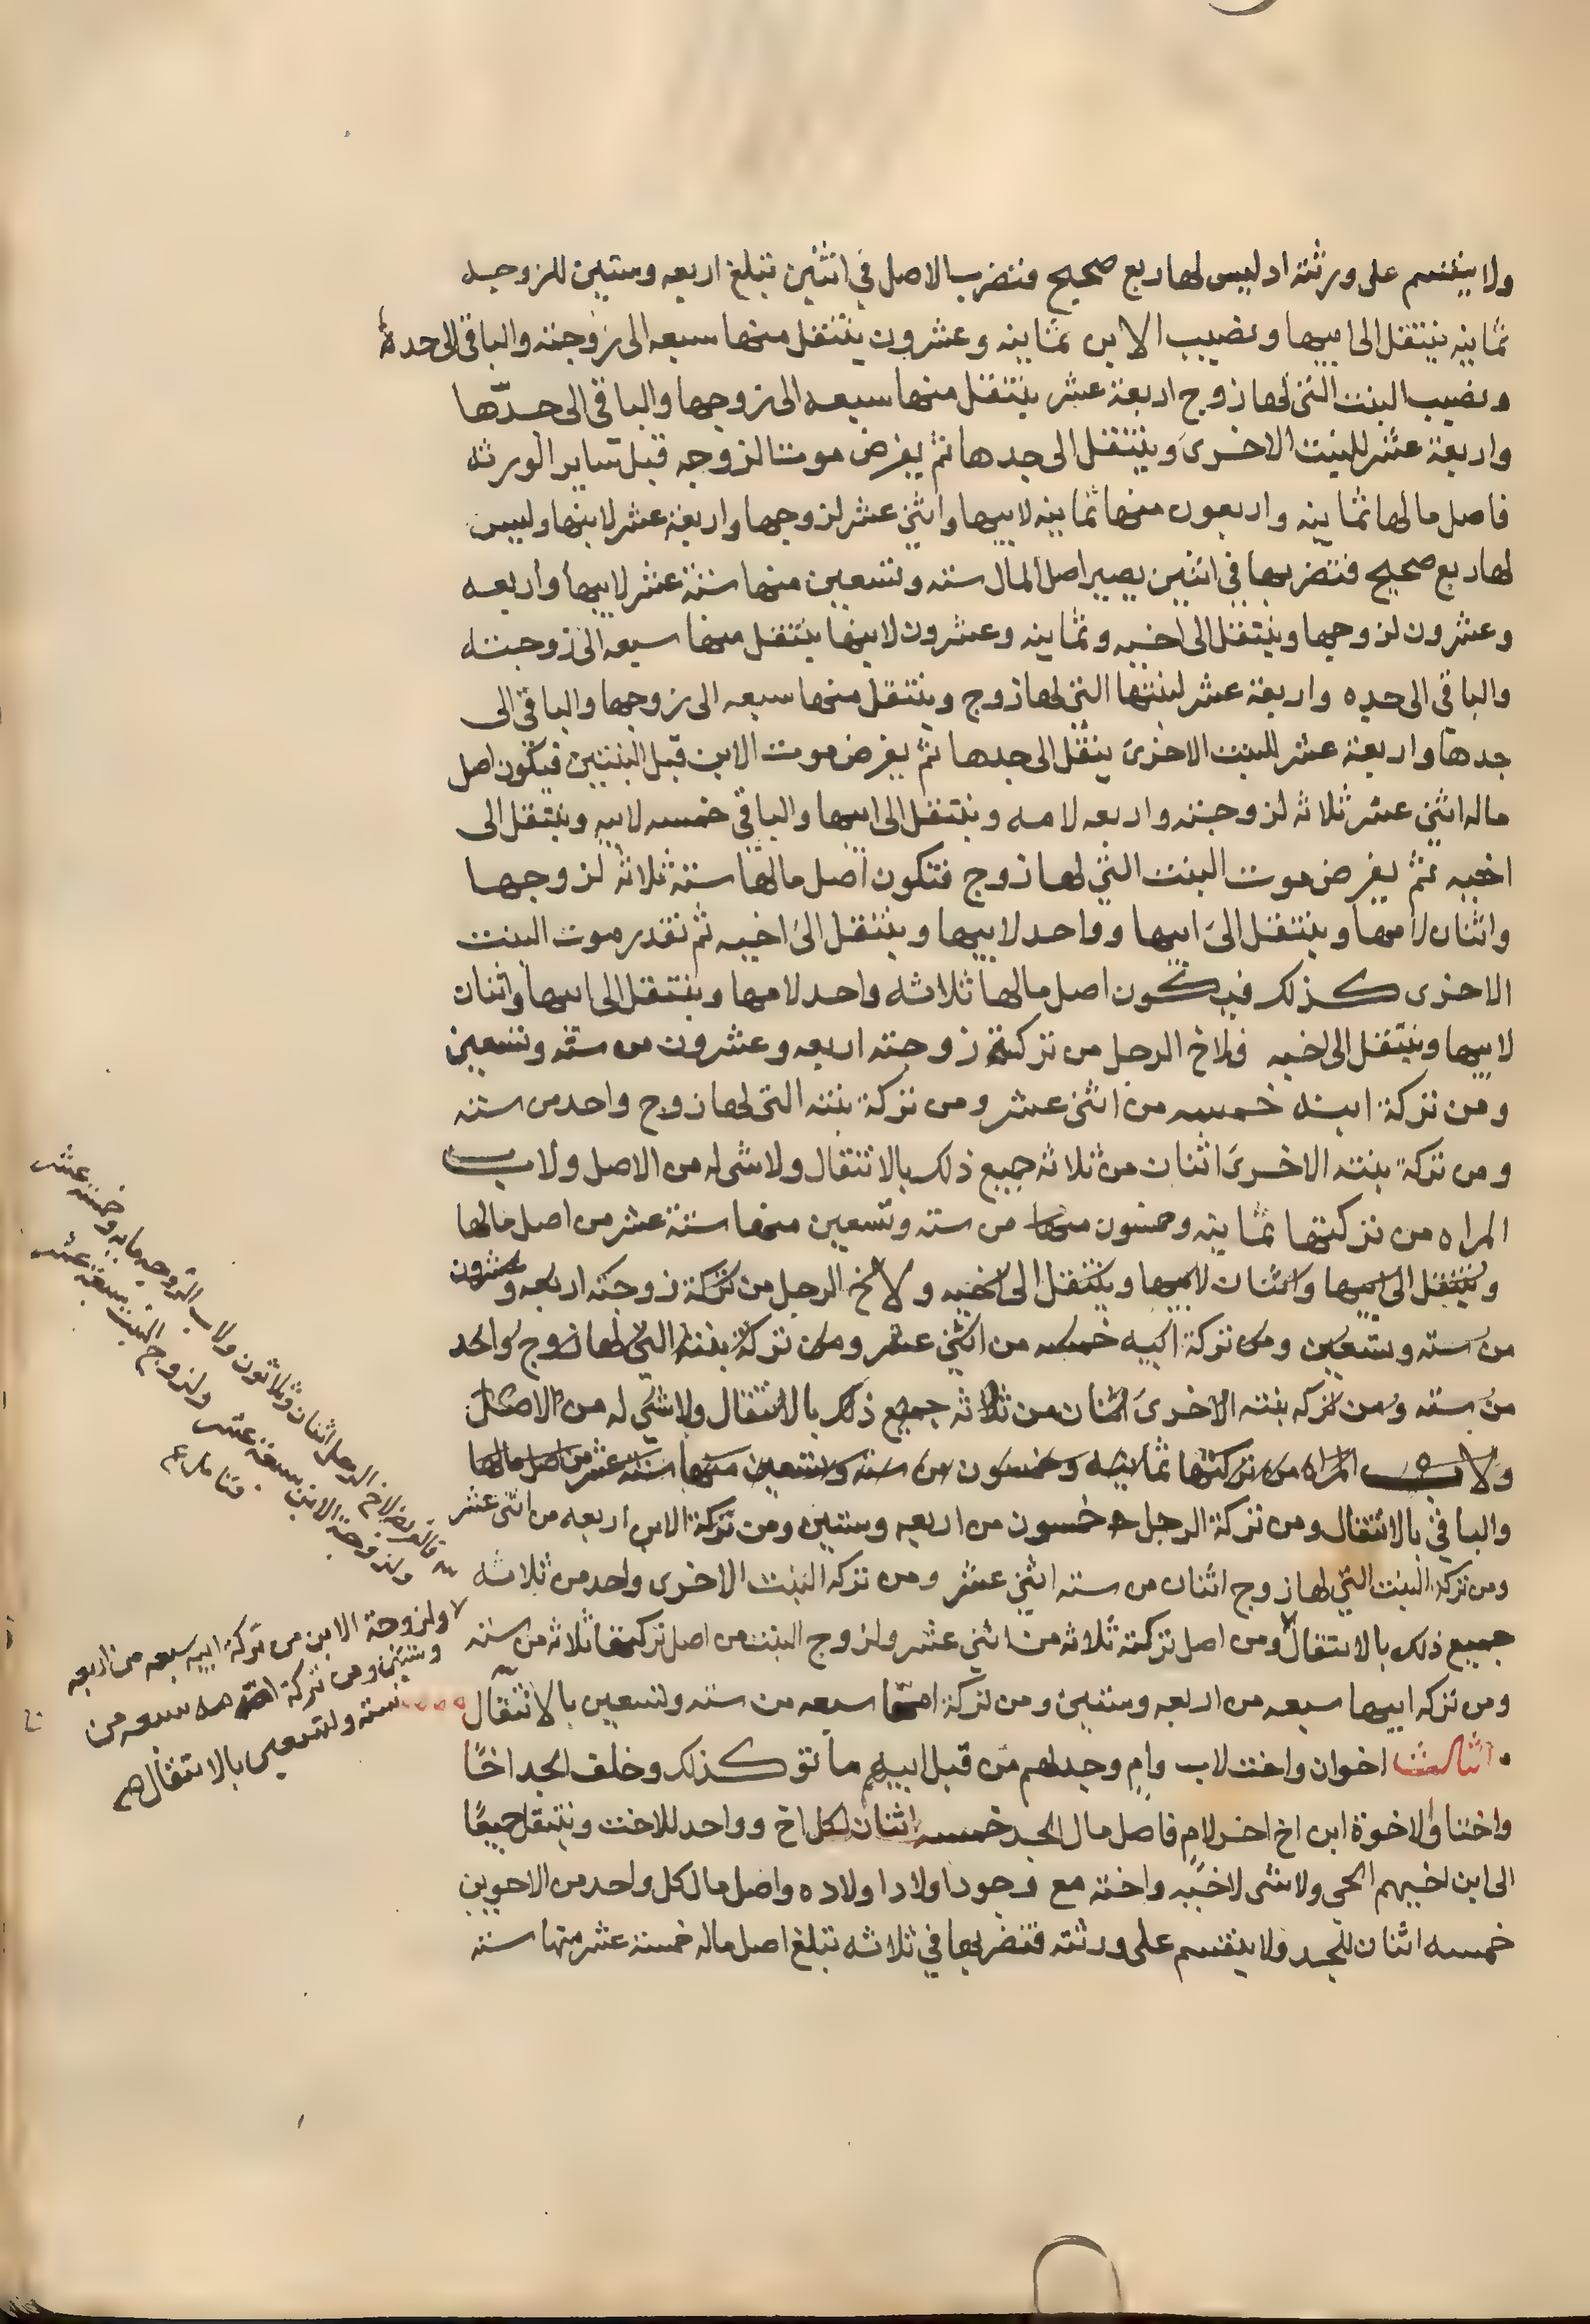 ولا ينقسم على ورثته اذ ليس لها ربع صحيح فتضرب الاصل في اثنين تبلغ اربعه وستين للزوجه
ثمانيه ينتقل الى ابيها ونصيب الابن ثمانيه وعشرون ينتقل منها سبعه الى زوجته والباقي الى جده
ونصيب البنت التي لها زوج اربعة عشر ينتقل منها سبعه الى زوجها والباقي الى جدّها
واربعة عشر للبنت الاخرى وينتقل الى جدها ثم يفرض موت الزوجه قبل ساير الورثه
فاصل مالها ثمانيه واربعون منها ثمانيه لابيها واثني عشر لزوجها واربعة عشر لابنها وليس
لها ربع صحيح فتضربها في اثنين يصير اصل المال سته وتسعين منها ستة عشر لابيها واربعه
وعشرون لزوجها وينتقل الى اخيه وثمانيه وعشرون لابنها ينتقل منها سبعه الى زوجته
والباقي الى جده واربعة عشر لبنتها التي لها زوج وينتقل منها سبعه الى زوجها والباقي الى
جدها واربعة عشر للبنت الاخرى ينتقل الى جدها ثم يفرض موت الابن قبل البنتين فيكون اصل
ماله اثني عشر ثلاثه لزوجته واربعه لامه وينتقل الى ابيها والباقي خمسه لابيه وينتقل الى
اخيه ثم يفرض موت البنت التي لها زوج فتكون اصل مالها ستة ثلاثة لزوجها
واثنان لامها وينتقل الى ابيها وواحد لابيها وينتقل الى اخيه ثم تقدر موت البنت
الاخرى كذلك فيكون اصل مالها ثلاثه واحد لامها وينتقل الى ابيها واثنان
لابيها وينتقل الى اخيه فلاخ الرجل من تركة زوجته اربعه وعشرون من ستة وتسعين
ومن تركة ابنه خمسه من اثني عشر ومن تركة بنته التي لها زوج واحد من سته
ومن تركة بنته الاخرى اثنان من ثلاثه جميع ذلك بالانتقال ولا شي له من الاصل ولاب
المراه من تركتها ثمانيه وخمسون منها من سته وتسعين منها ستة عشر من اصل مالها
وينتقل الى ابيها واثنان لابيها وينتقل الى اخيه ولاخ الرجل من تركة زوجته اربعه وعشرون
من سته وتسعين ومن تركة ابنه خمسه من اثني عشر ومن تركة بنته التي لها زوج واحد
من سته ومن تركه بنته الاخرى اثنان من ثلاثه جميع ذلك بالانتقال ولا شي له من الاصل
ولاب المراه من تركتها ثمانيه وخمسون من سته وتسعين منها ستة عشر من اصل مالها
والباقي بالانتقال ومن تركة الرجل خمسون من اربعه وستين ومن تركة الابن اربعه من اثني عشر
ومن تركة البنت التي لها زوج اثنان من سته اثني عشر ومن تركه البنت الاخرى واحد من ثلاثه
جميع ذلك بالانتقال ومن اصل تركته ثلاثه من اثني عشر ولزوج البنت من اصل تركتها ثلاثه من سته
ومن تركه ابيها سبعه من اربعه وستين ومن تركة امها سبعه من سته وتسعين بالانتقال
الثالث اخوان واخت لاب وام وجدهم من قبل ابيهم ماتو كذلك وخلف الجد اخًا
واختا ولاخوة ابن اخ اخر لام فاصل مال الجد خمسه اثنان لكل اخ وواحد للاخت وينتقل جميعًا
الى ابن اخيهم الحي ولا شى لاخيه واخته مع وجود اولاد اولاده واصل مال كل واحد من الاخوين
خمسه اثنان للجد ولا ينقسم على ورثته فتضربها في ثلاثه تبلغ اصل ماله خمسة عشر منها سته
لاخ الرجل اثنان وثلاثون ولاب الزوجه مايه وخمسة عشر
ولزوجة الابن سبعة عشر ولزوج البنت سبعة عشر
ولزوجة الابن من تركة ابيه سبعه من اربعه
وستين ومن تركة امه سبعه من
سته وتسعين بالانتقال